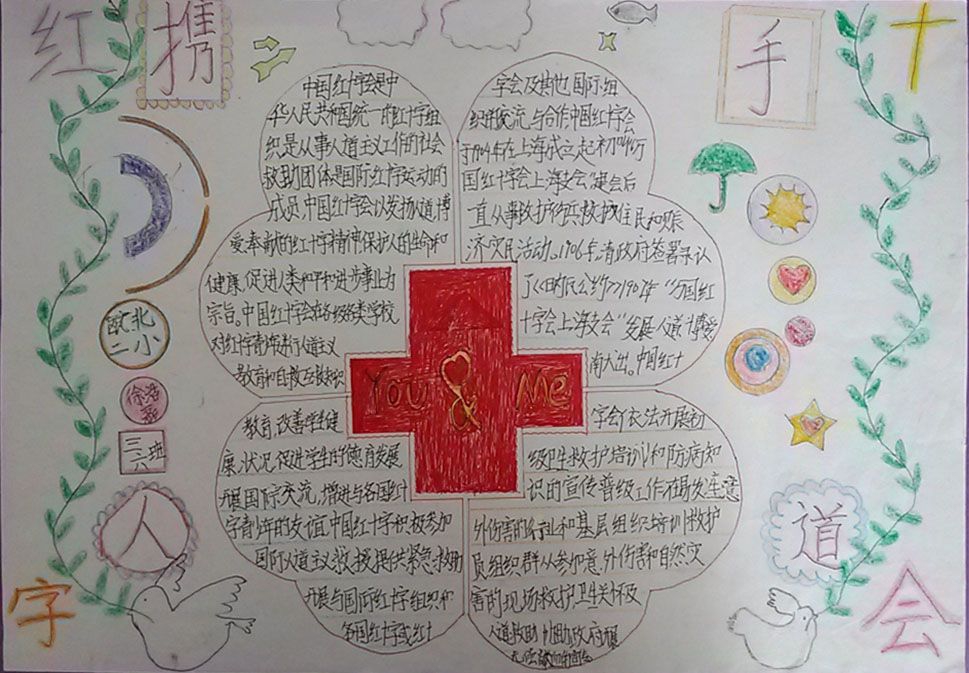 红 十 字 会
携 手 人 道
欧北
二小
三六班
You & Me
中国红十字会是中
华人民共和国统一的红十字组
织是从事人道主义工作的社会
救助团体是国际红十字运动的
成员,中国红十字会以发扬人道,博
爱奉献的红十字精神,保护人的生命和
健康,促进人类和平和进步事业为
宗旨。中国红十字会在各级各类学校
对红十字青少年进行人道主义
教育和自救互救知识
教育,改善学生健
康,状况,促进学生的德育发展
开展国际交流,增进与各国红十
字青少年的友谊,中国红十字积极参加
国际人道主义救援提供紧急,救助
开展与国际红十字组织和
各国红十字或红十
字会及其他国际组
织的交流,与合作中国红十字会
于1904年在上海成立起初叫做万
国红十字会上海支会"建会后
一直从事救护伤兵,救护住民和赈
济灾民活动。1906年,清政府签署录认
了《日内瓦公约》1906年"万国红
十字会上海支会"发展人道博爱
。中国红十
字会依法开展初
级卫生救护培训和防病知
识的宣传普级工作在易发生意
外伤害的行业和基层组织培训救护
员组织群从参加意,外伤害和自然灾
害的现场救护卫生关怀及
人道救助,协助政府开展